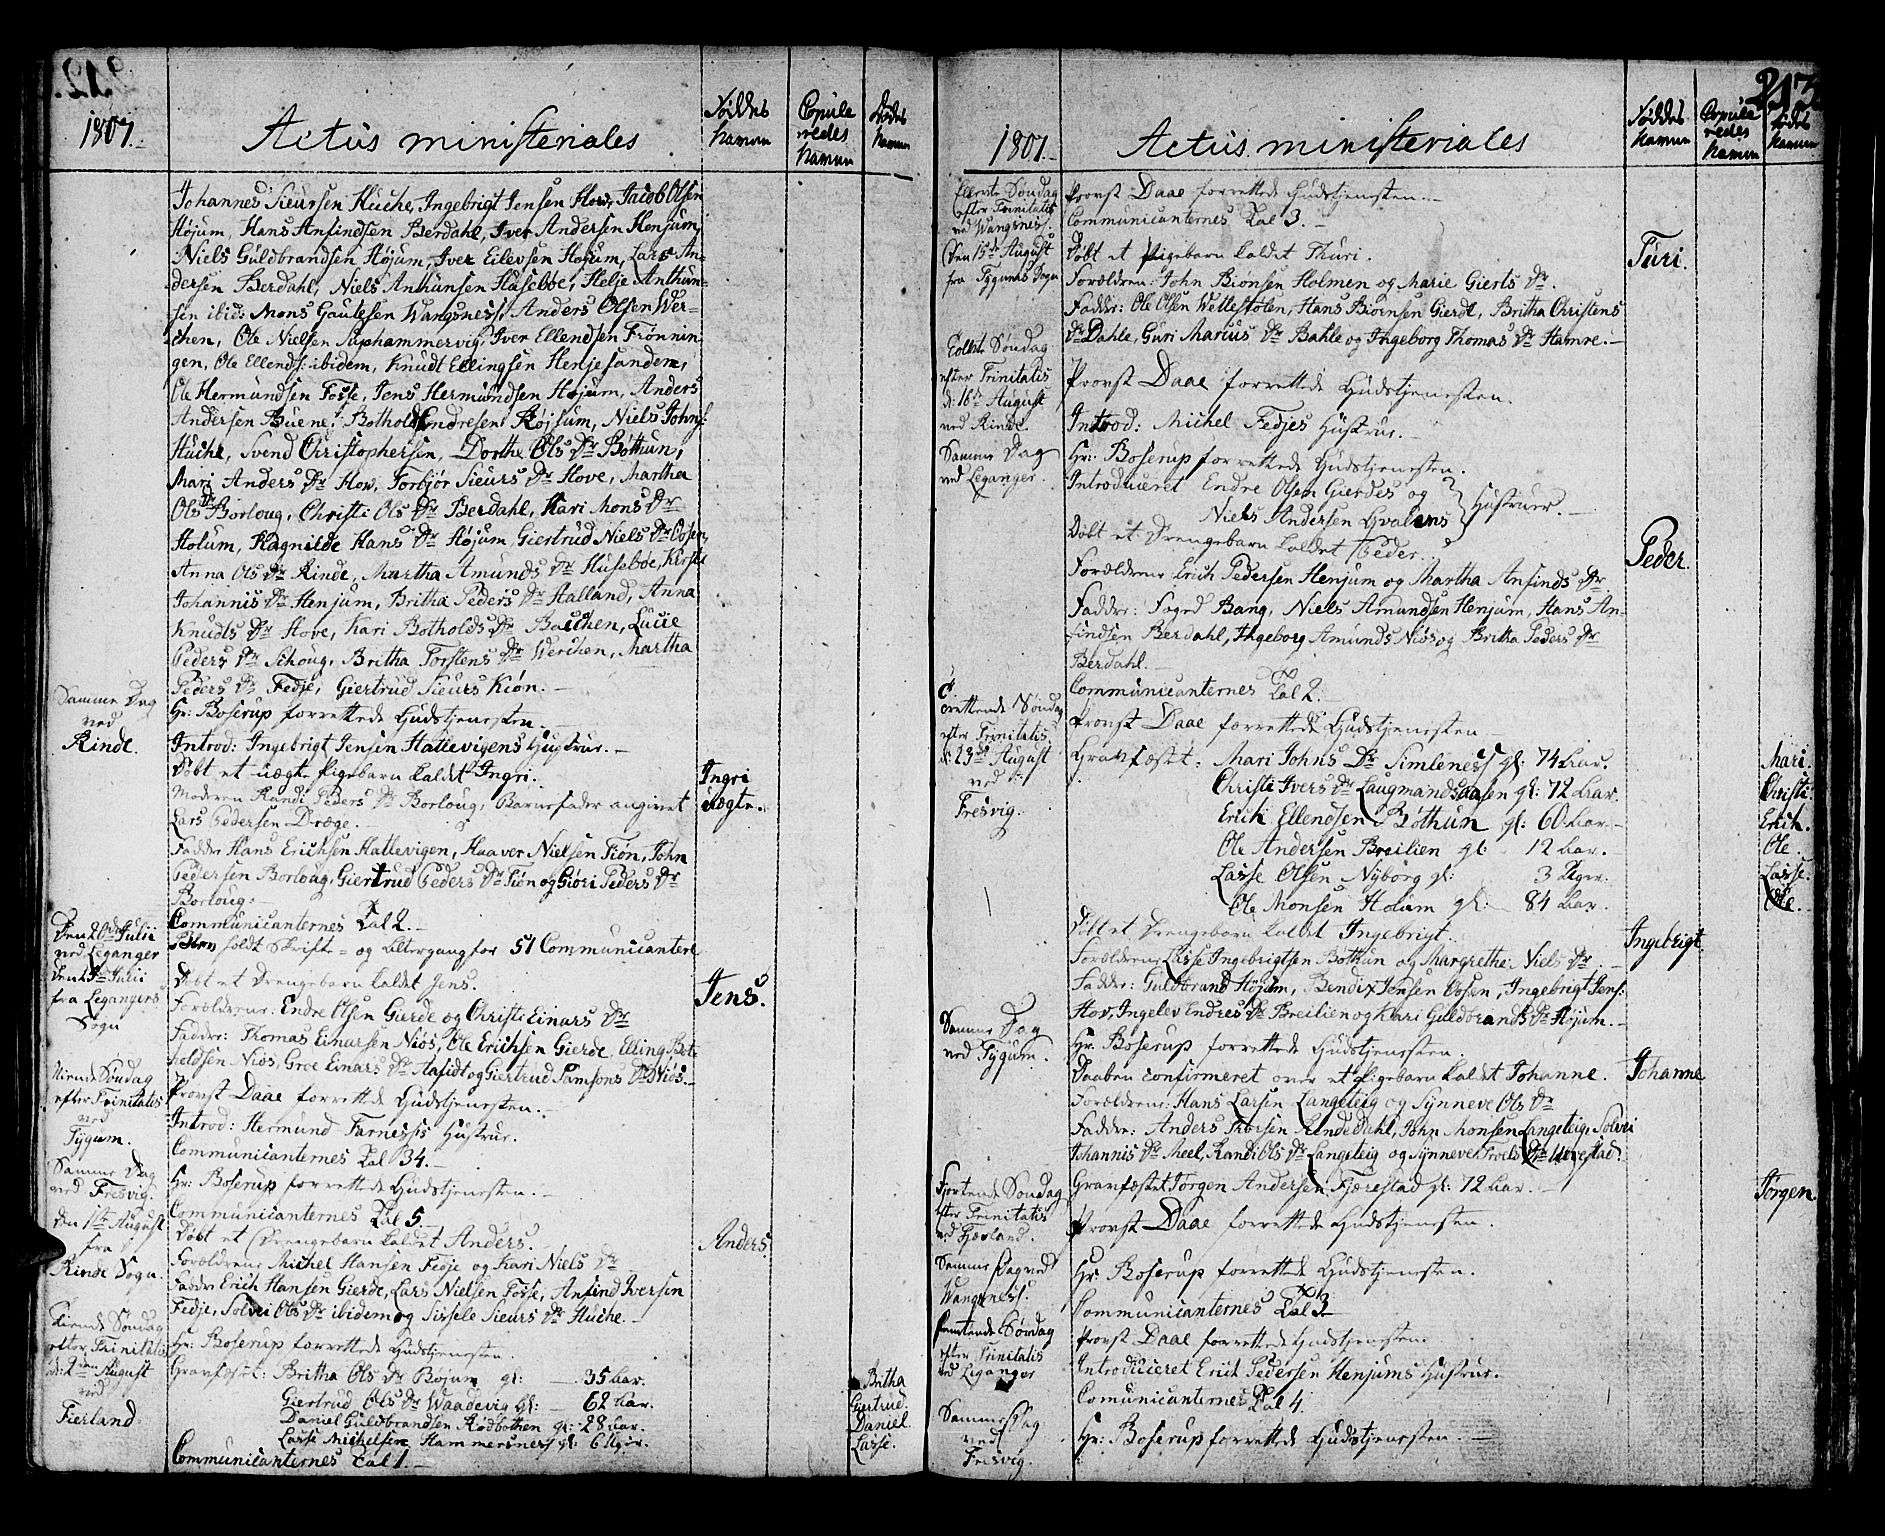 1807.
Actus ministeriales
Føddes
Navne
Copule
redes
Navne
Dødes
Navne
Johannes Sieursen Huche, Ingebrigt Jensen Hov, Jacob Olsen
Højum, Hans Anfindsen Berdahl, Iver Andersen Henjum,
Niels Guldbrandsen Højum, Iver Eilevsen Højum, Lars An-
dersen Berdahl, Niels Anthunsen Huseboe, Helje Anthun-
sen ibid: Mons Gautesen Wangsness, Anders Olsen Wer-
chen, Ole Nielsen Suphammervig, Iver Ellendsen Frønnin
gen, Ole Ellends: ibidem, Knudt Ellingsen Henjesanden,
Ole Hermundsen Fosse, Jens Hermundsen Højum, Anders
Andersen Buene, Bothold Endresen Røjsum, Niels Johns:
Huche, Svend Christophersen, Dorthe Ols Dr Bøthun,
Mari Anders Dr Hov, Torbjør Sieurs Dr Hove, Martha
Ols Dr Borloug, Christi Ols Dr Berdahl, Kari Mons Dr
Holum, Ragnilde Hans Dr Højum, Giertrud Niels Dr Oosen,
Anna Ols Dr Rinde, Martha Amunds Dr Huseboe, Kirsti
Johannis Dr Henjum, Britha Peders Dr Halland, Anna
Knudts Dr Hove, Kari Botholds Dr Balchen, Lucie
Peders Dr Schoug, Britha Torstens Dr Werchen, Martha
Peders Dr Fedje, Giertrud Sieurs Kiøn.
Samme Dag
ved
Rinde.
Hr: Boserup forrettede Gudstjenesten.
Introd: Ingebrigt Jensen Hallevigens Hustrue.
Døbt et uægte Pigebarn kaldet Ingri.
Ingri
uægte.
Moderen Randi Peders Dr Borloug, Barnefader angivet
Lars Pedersen Dræge.
Fadder Hans Erichsen Hallevigen, Haaver Nielsen Tiøn, John
Pedersen Borloug, Giertrud Peders Dr Tiøn og Giøri Peders Dr
Borloug.
Communicanternes Tal 2.
Den 20de Julii
ved Leganger
Blev holdt Skrifte- og Altergang for 51 Communicantere
Julii
fra Legangers
Sogn
Døbt et Drengebarn kaldet Jens.
Jens.
Forældrene: Endre Olsen Gierde og Christi Einars Dr
Fadder: Thomas Einarsen Niøs, Ole Erichsen Gierde, Elling Bot
holdsen Niøs, Groe Einars Dr og Giertrud Samsons Dr Niøs.
Niende Søndag
efter Trinitatis
ved
Tygum.
Provst Daae forrettede Gudstjenesten.
Introd: Hermund Farnessis Hustrue.
Communicanternes Tal 34.
Samme Dag
ved Fresvig.
Hr: Boserup forrettede Gudstjenesten.
Communicanternes Tal 5.
Den 1ste August
fra
Rinde Sogn.
Døbt et Drengebarn kaldet Anders.
Anders.
Forældrene Michel Hansen Fedje og Kari Niels Dr
Fadder Erich Hansen Gierde, Lars Nielsen Fosse, Anfind Iversen
Fedje, Solvei Ols Dr ibidem og Sissele Sieurs Dr Huche.
Tiende Søndag
efter Trinitatis
d: 2den August
ved
Fierland.
Hr: Boserup forrettede Gudstjenesten.
Gravfæstet: Britha Ols Dr Bøjum gl: 35 Aar.
Britha
Giertrud Ols Dr Waadevig gl: 62 Aar.
Giertrud.
Daniel Guldbrandsen Rødbothen gl: 28 Aar.
Daniel.
Lasse Michelsen Hammersness gl: 6 Uger.
Lasse.
Communicanternes Tal 1.
213
1807.
Actus ministeriales
Føddes
Navne
Copule
redes
Navne
Dødes
Navne
Ellevte Søndag
efter Trinitatis
ved Wangsness.
Provst Daae forrettede Gudstjenesten.
Communicanternes Tal 3.
Den 15de August
fra Tygums Sogn
Døbt et Pigebarn kaldet Thuri.
Turi.
Forældrene: John Biønsen Holmen og Marie Gierts Dr.
Fadder: Ole Olsen Wettestolen, Hans Biørnsen Gierdt, Britha Christens
Dr Dahle, Guri Marcus Dr Bahle og Ingeborg Thomas Dr Hamre.
Søndag
efter Trinitatis
d: 16de August
ved Rinde.
Provst Daae forrettede Gudstjenesten.
Introd: Michel Fedjes Hustrue.
Samme Dag
ved Leganger.
Hr: Boserup forrettede Gudstjenesten.
Introduceret Endre Olsen Gierdes og
Niels Andersen Hvalens } Hustruer.
Døbt et Drengebarn kaldet Peder.
Peder.
Forældrene Erich Pedersen Henjum og Martha Anfinds Dr.
Fadder: Foged Bang, Niels Amundsen Henjum, Hans An-
findsen Berdahl, Ingeborg Amunds Niøs og Britha Peders Dr
Berdahl.
Communicanternes Tal 2.
Trettende Søndag
efter Trinitatis
d: 23de August
ved
Fresvig.
Provst Daae forrettede Gudstjenesten
Gravfæstet: Mari Johns Dr Simleness gl: 74 Aar.
Mari.
Christi Ivers Dr Laugmandsaasen gl: 72 Aar.
Christi.
Erich Ellendsen Bøthun gl: 60 Aar.
Erich.
Ole Andersen Breilien gl: 12 Aar.
Ole.
Lasse Olsen Nyborg gl: 3 Uger.
Lasse.
Ole Monsen Holum gl: 84 Aar.
Ole.
Døbt et Drengebarn kaldet Ingebrigt.
Ingebrigt.
Forældrene Lasse Ingebrigtsen Bøthun og Margrethe Niels Dr.
Fadder: Guldbrand Højum, Bendix Jonsen Oosen, Ingebrigt Jens:
Hov, Ingelev Endres Dr Breilien og Kari Guldbrands Dr Højum.
Samme Dag
ved Tygum.
Hr. Boserup forrettede Gudstjenesten.
Daaben confirmeret over et Pigebarn kaldet Johanne.
Johanne
Forældrene: Hans Larsen Langeteig og Synneve Ols Dr
Fadder: Anders Rindedahl, John Monsen Langeteig, Solvei
Johannis Dr Meel, Randi Ols Dr Langeteig og Synneve Troels Dr
Gravfæstet Jørgen Andersen Fjærestad gl: 72 Aar.
Jørgen.
Fjortende Søndag
efter Trinitatis
ved Fjærland.
Provst Daae forrettede Gudstjenesten.
Samme Dag ved
Wangsness.
Hr: Boserup forrettede Gudstjenesten.
Communicanternes Tal 3
Femtende Søndag
efter Trinitatis
ved Leganger
Provst Daae forrettede Gudstjenesten.
Introduceret Erich Pedersen Henjums Hustrue.
Comunicanternes Tal 4.
Samme Dag
ved
Fresvig.
Hr: Boserup forrettede Gudstjenesten.